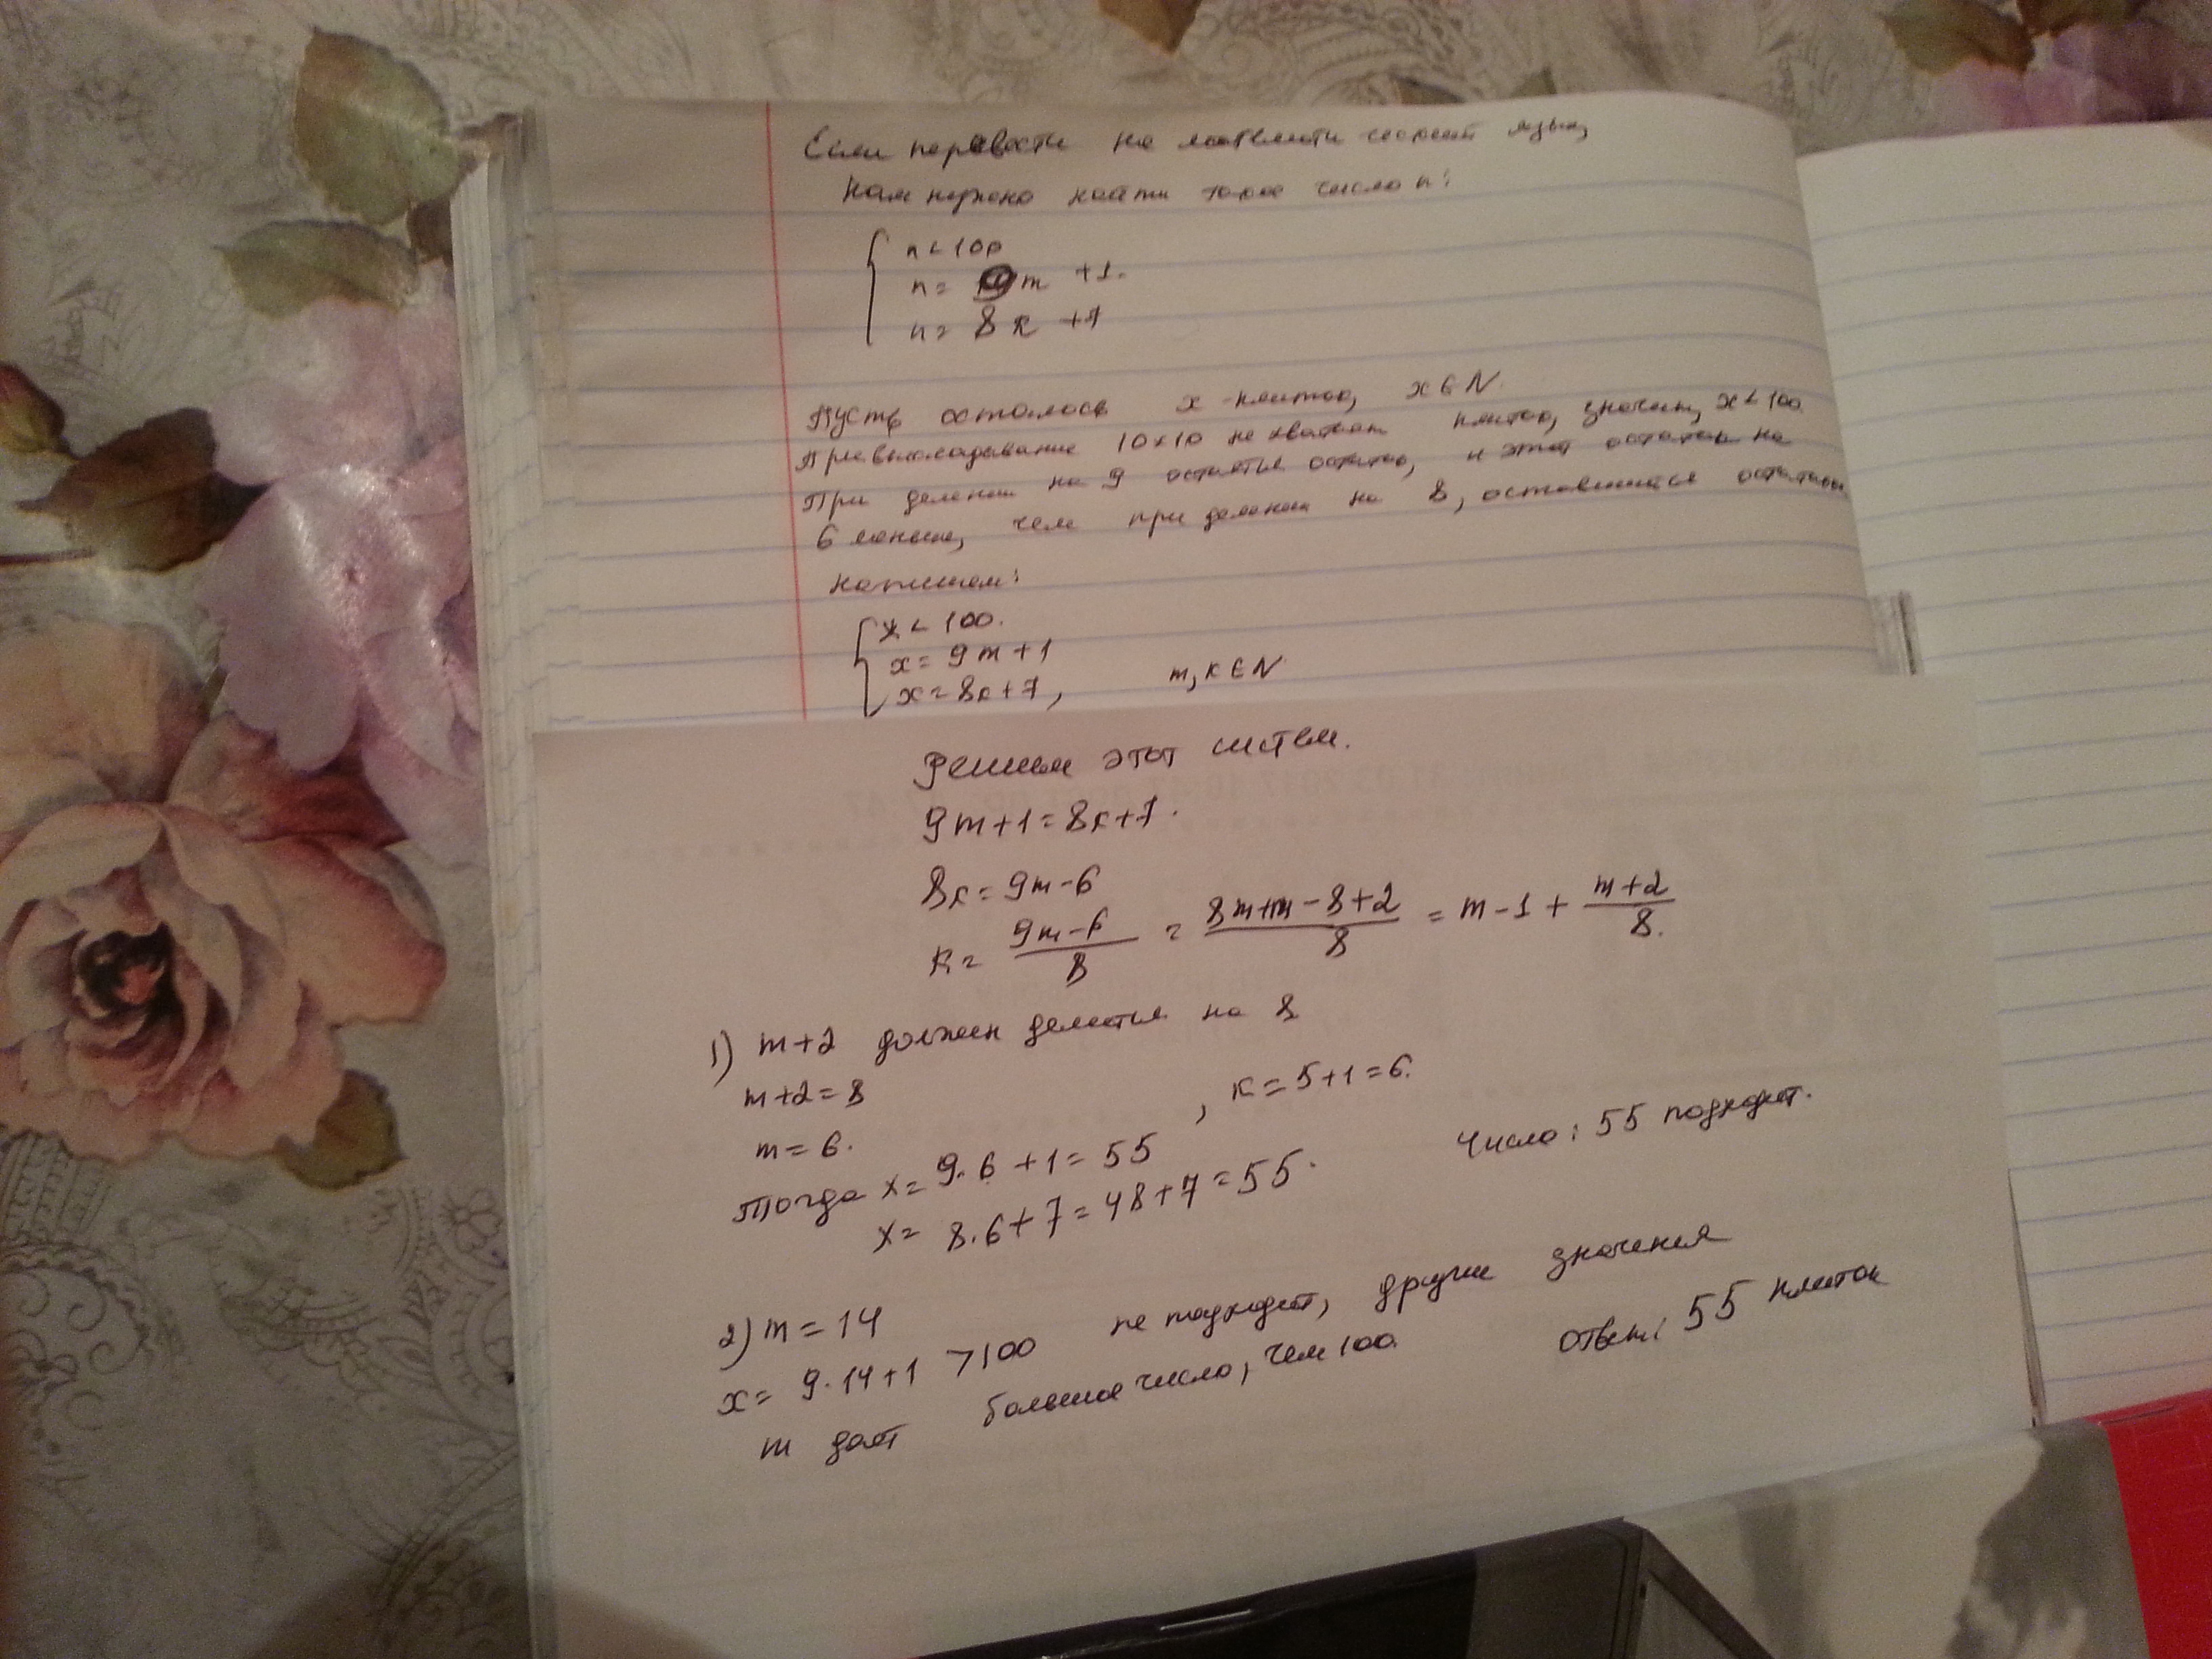 Если перевести на математический язык,
нам нужно найти такое число n:
n < 100
n = 9m + 1.
n = 8k + 7
Пусть осталось x плиток, x ∈ N.
При выкладывание 10×10 не хватает плиток, значит, x < 100.
При делении на 9 остаётся остаток, и этот остаток на
6 меньше, чем при делении на 8, оставшийся остаток
напишем:
x < 100.
x = 9m + 1
x = 8k + 7, m, k ∈ N
Решим этот систем.
9m + 1 = 8k + 7.
8k = 9m - 6
k = (9m - 6)/8 = (8m + m - 8 + 2)/8 = m - 1 + (m + 2)/8.
1) m + 2 должен делится на 8
m + 2 = 8
m = 6. , k = 5 + 1 = 6.
Тогда x = 9·6 + 1 = 55
x = 8·6 + 7 = 48 + 7 = 55. Число: 55 подходит.
2) m = 14
x = 9·14 + 1 > 100 не подходит, другие значения
m даёт большое число, чем 100. Ответ: 55 плиток